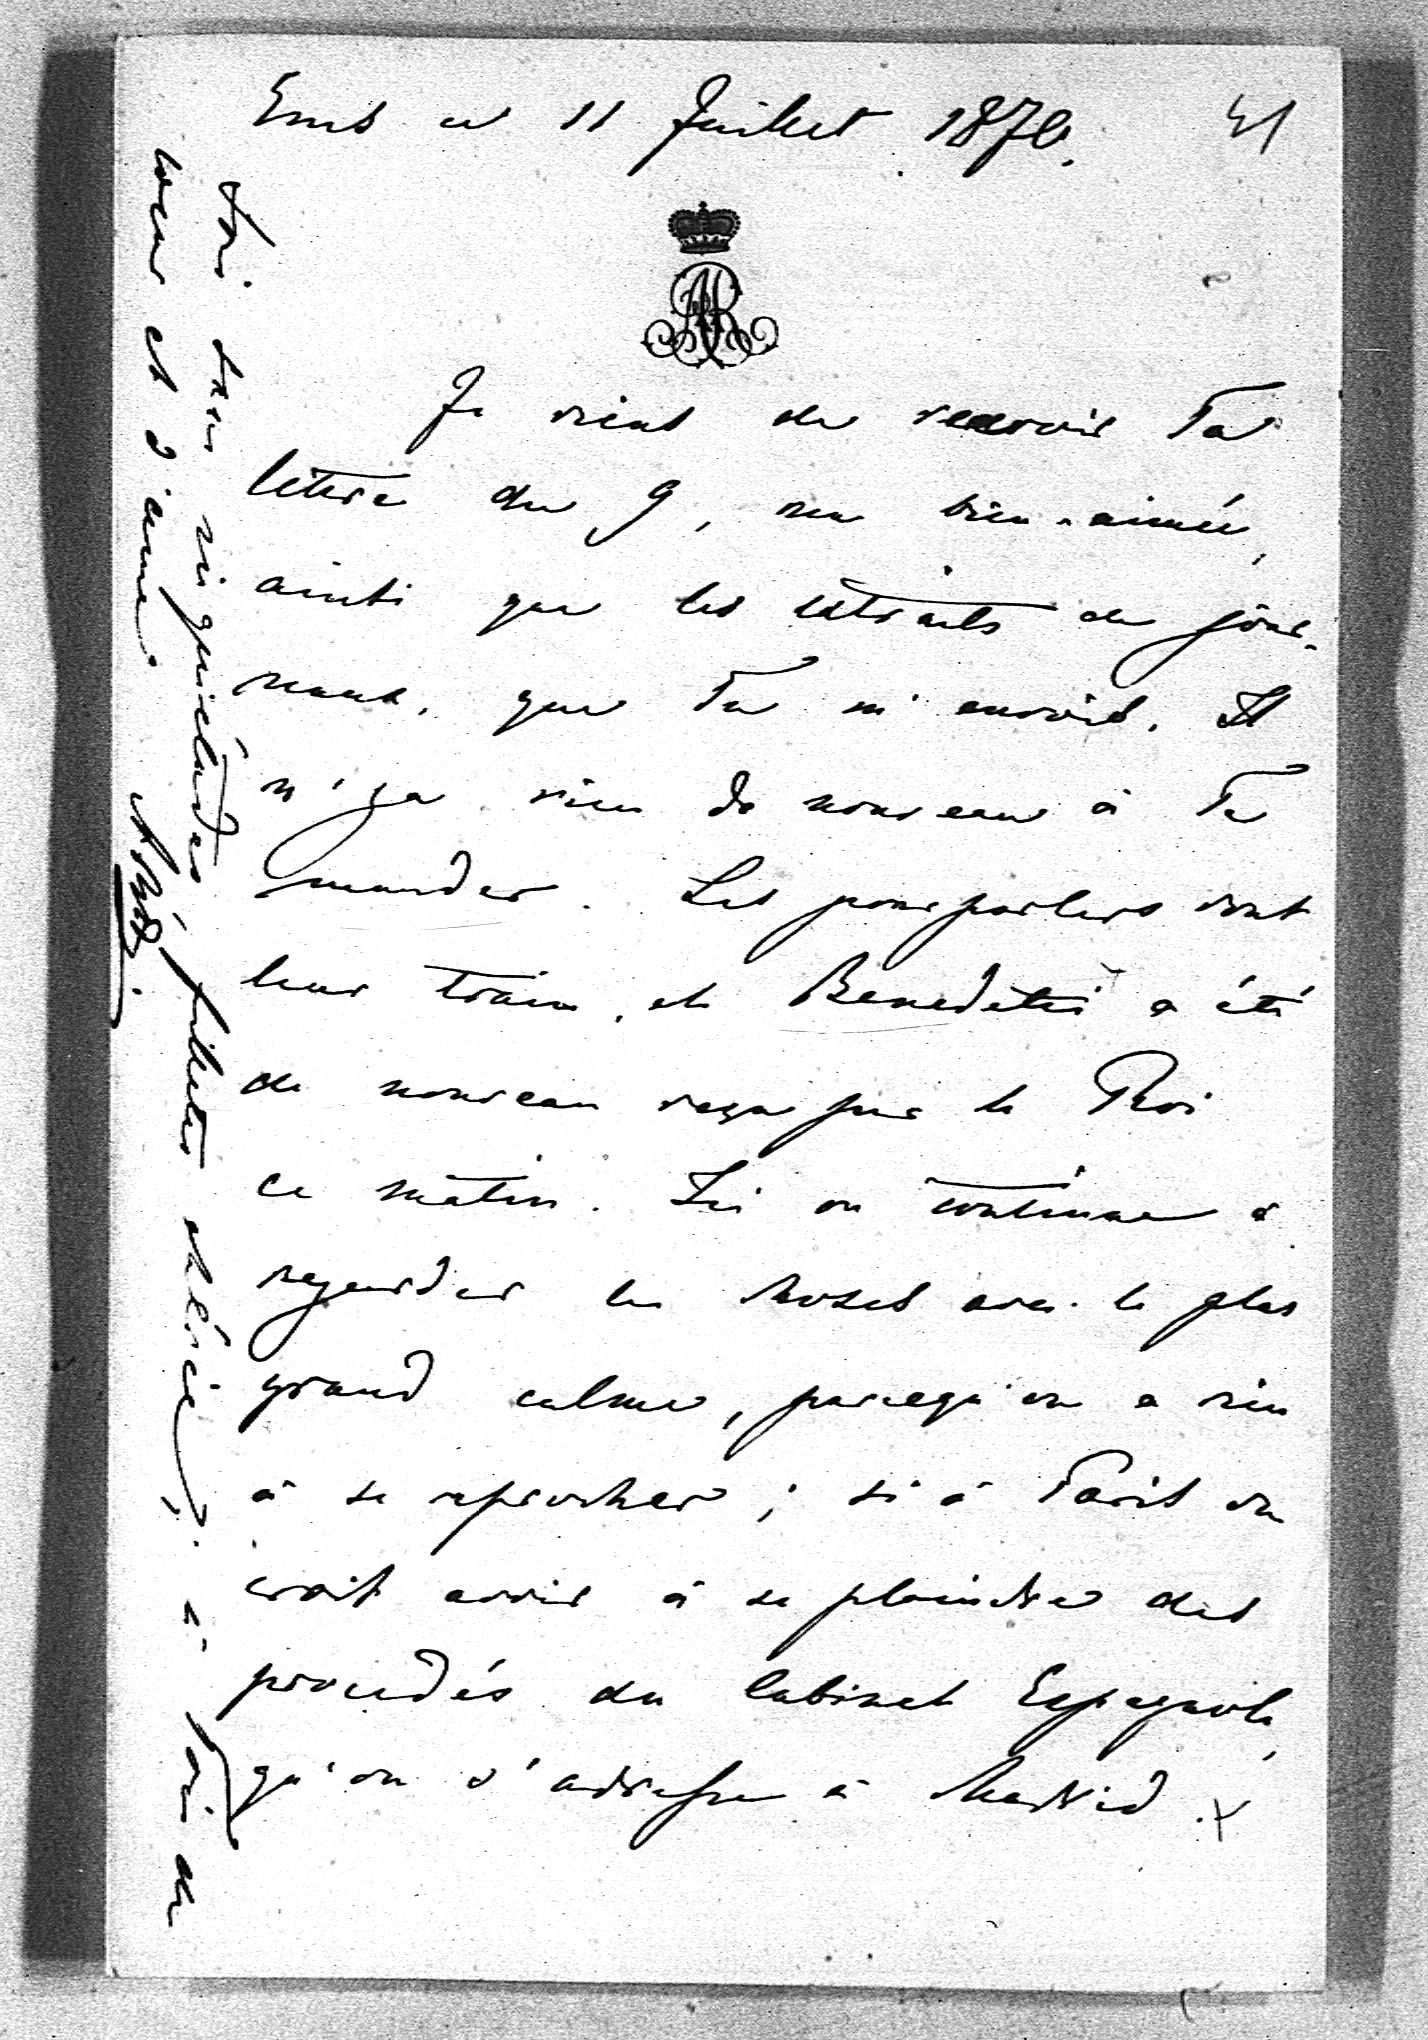 Ems ce 11 Juillet 1870.
51
AR
Je viens de recevoir Ta
lettre du 9, ma bien-aimée,
ainsi que les extraits de jour-
naux, que Tu m'envois. Il
n'y a rien de nouveau à Te
mander. Les pourparlers vont
leur train, et Benedetti a été
de nouveau reçu par le Roi
ce matin. Ici on continue à
regarder les choses avec le plus
grand calme, parcequ'on a rien
à se reprocher; si à Paris on
croit avoir à se plaindre des
procédés du Cabinet Espagnol,
qu'on s'adresse à Madrid.
inquiétudes, chérie, à Toi de
cœur et d'âme.